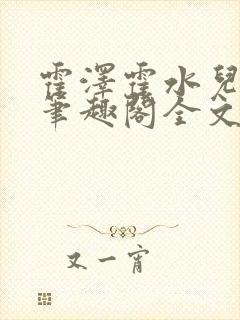 霍澤霍水兒
筆趣閣全文
又一宵